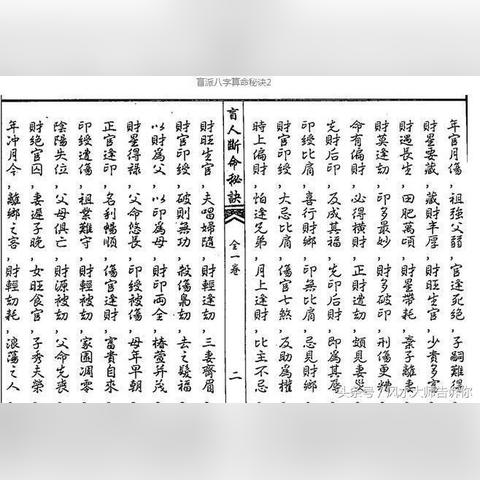 盲派八字算命秘诀2
年官月傷,祖強父弱,官逢死絶,子嗣難得
財星要藏,藏財半厚,財旺生官,少貴多富
財遇長生,田肥萬頃,財星帶耗,棄子離妻
財莫逢劫,印多最妙,財多破印,刑傷更
命有偏財,必得橫財,正財遭劫,頗見妻災
先財后印,反成其福,先印后財,即為其辱
印綬比肩,喜行財鄉,印無比肩,忌見財鄉
財官印綬,大忌比肩,傷官七煞,反助為權
時上偏財,怕逢兄弟,月上逢財,比主不忌
盲人斷命秘訣 全一卷 二
財旺生官,夫唱婦隨,財輕逢劫,三妻齊眉
財官印綬,破則無功,殺傷梟劫,去之發福
以財為父,以印為母,財印兩全,椿萱并茂
財星得祿,父命悠長,印綬被傷,母年早朝
正官逢印,名利暢順,傷官逢財,富貴自來
印綬遭傷,祖業難守,財輕被劫,家園凋零
陰陽失位,父母俱亡,財源被劫,父命先喪
財絕官囚,妻遲子晚,女旺食官,子秀夫榮
年冲月令,離鄉之客,財輕劫耗,浪蕩之人
头条号／风水大师告诉你